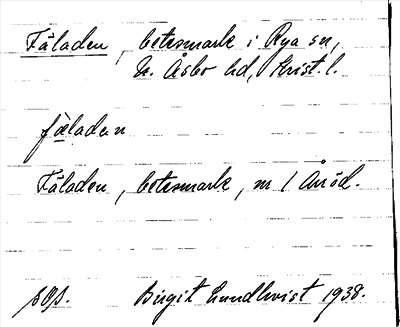 Fäladen, betesmark i Rya sn,
N. Åsbo hd, Krist. l.
fæladen
Fäladen, betesmark, nr 1 Anöd.
Birgit Lundkvist 1938.